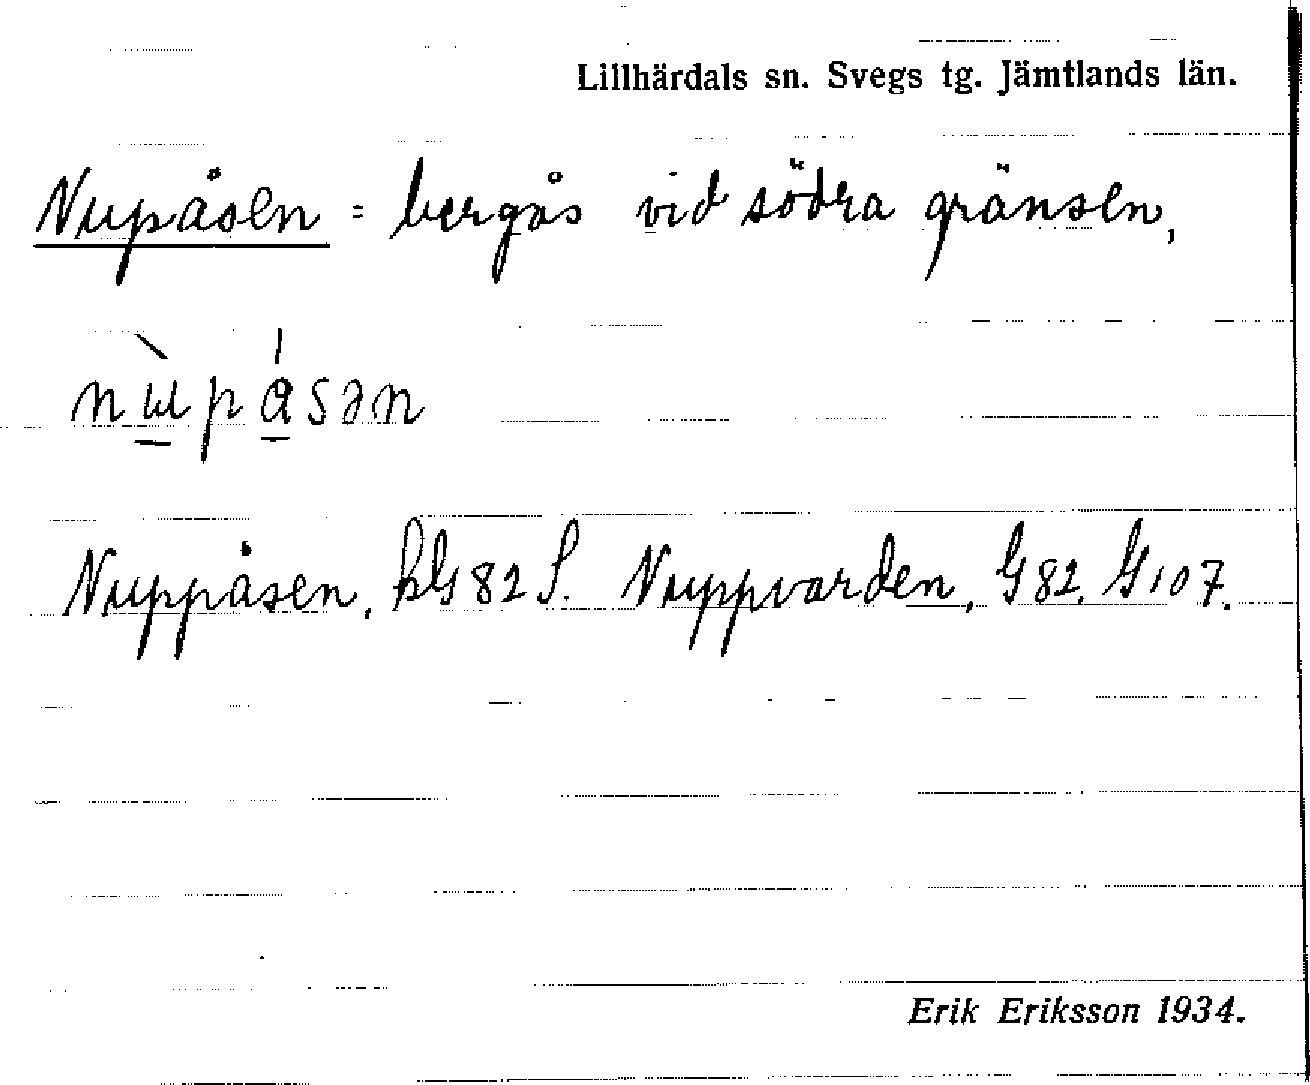 Lillhärdals sn. Svegs tg. Jämtlands län.
Nupåsen = bergås vid södra gränsen,
Nuppåsen, bG 82 S. Nuppvarden, G 82, G 107.
Erik Eriksson 1934.